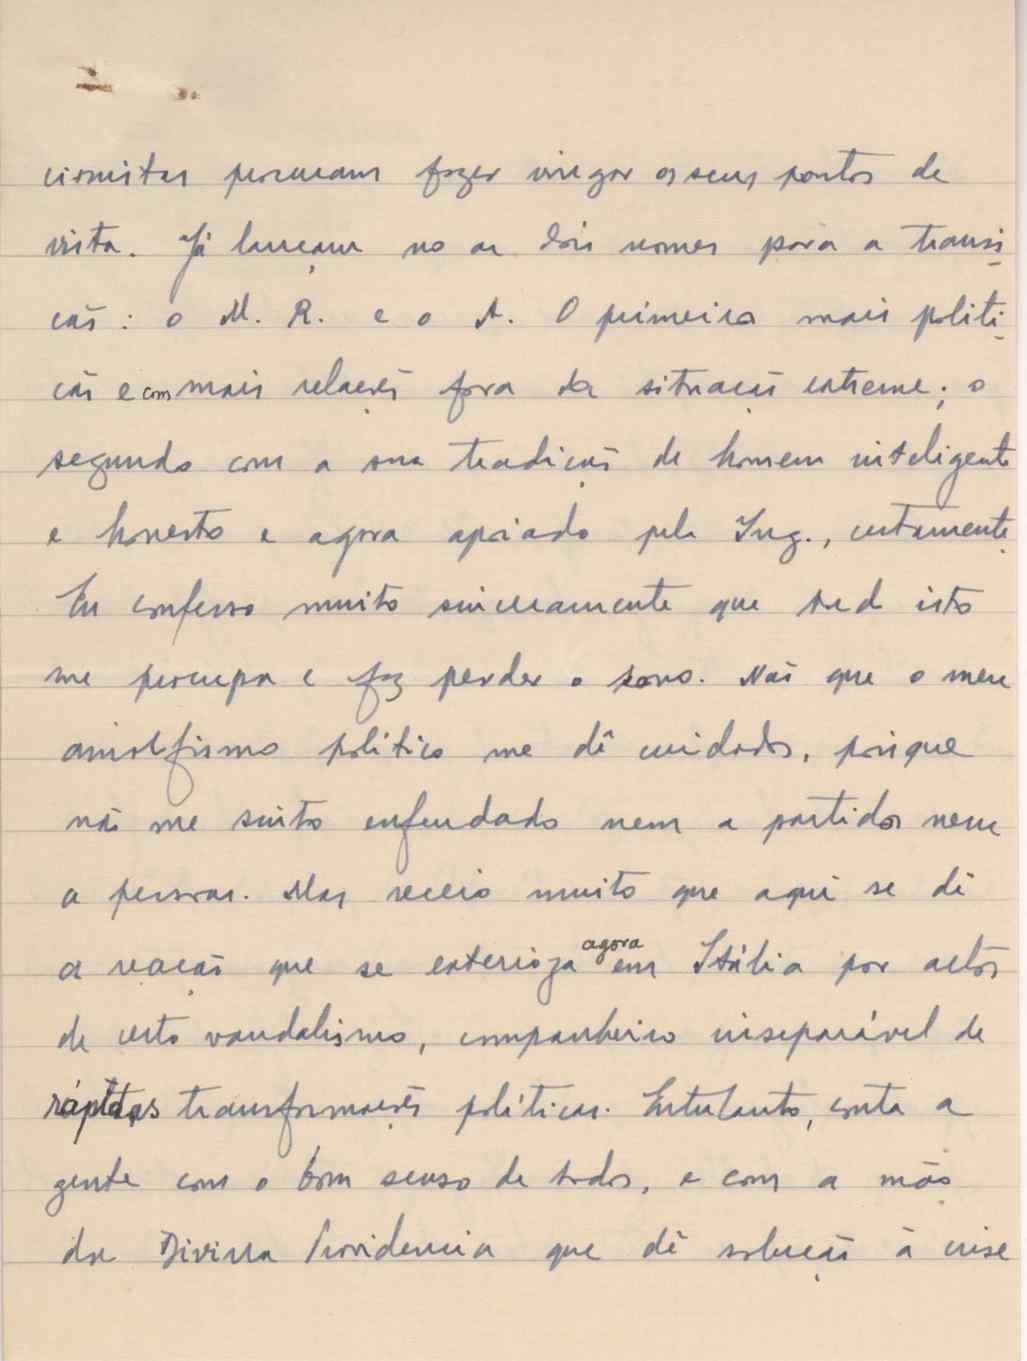 cionistas procuram fazer vingar os seus pontos de
vista. Já lançam no ar dois nomes para a transi-
ção: o M. R. e o A. O primeiro mais políti-
cão e com mais relações fora da situação extreme; o
segundo com a sua tradição de homem inteligente
e honesto e agora apoiado pela Ing., certamente.
Eu confesso muito sinceramente que tudo isto
me preocupa e faz perder o sono. Não que o meu
amorfismo político me dê cuidados, porque
não me sinto enfeudado nem a partidos nem
a pessoas. Mas receio muito que aqui se dê
a reacção que se exterioriza agora em Itália por actos
de certo vandalismo, companheiro inseparável de
rápidas transformações políticas. Entretanto, conta a
gente com o bom senso de todos, e com a mão
da Divina Providencia que dê solução à crise